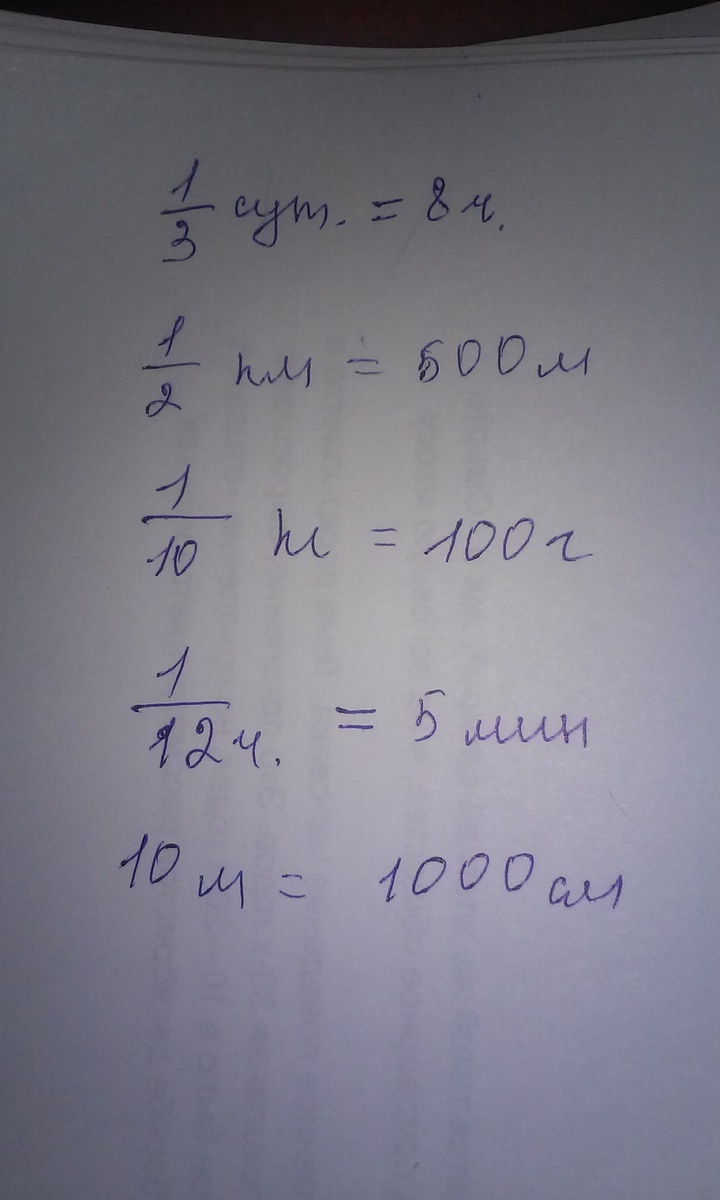 1/3 сут. = 8 ч.
1/2 км = 500 м
1/10 кг = 100 г
1/12 ч. = 5 мин
10 м = 1000 см